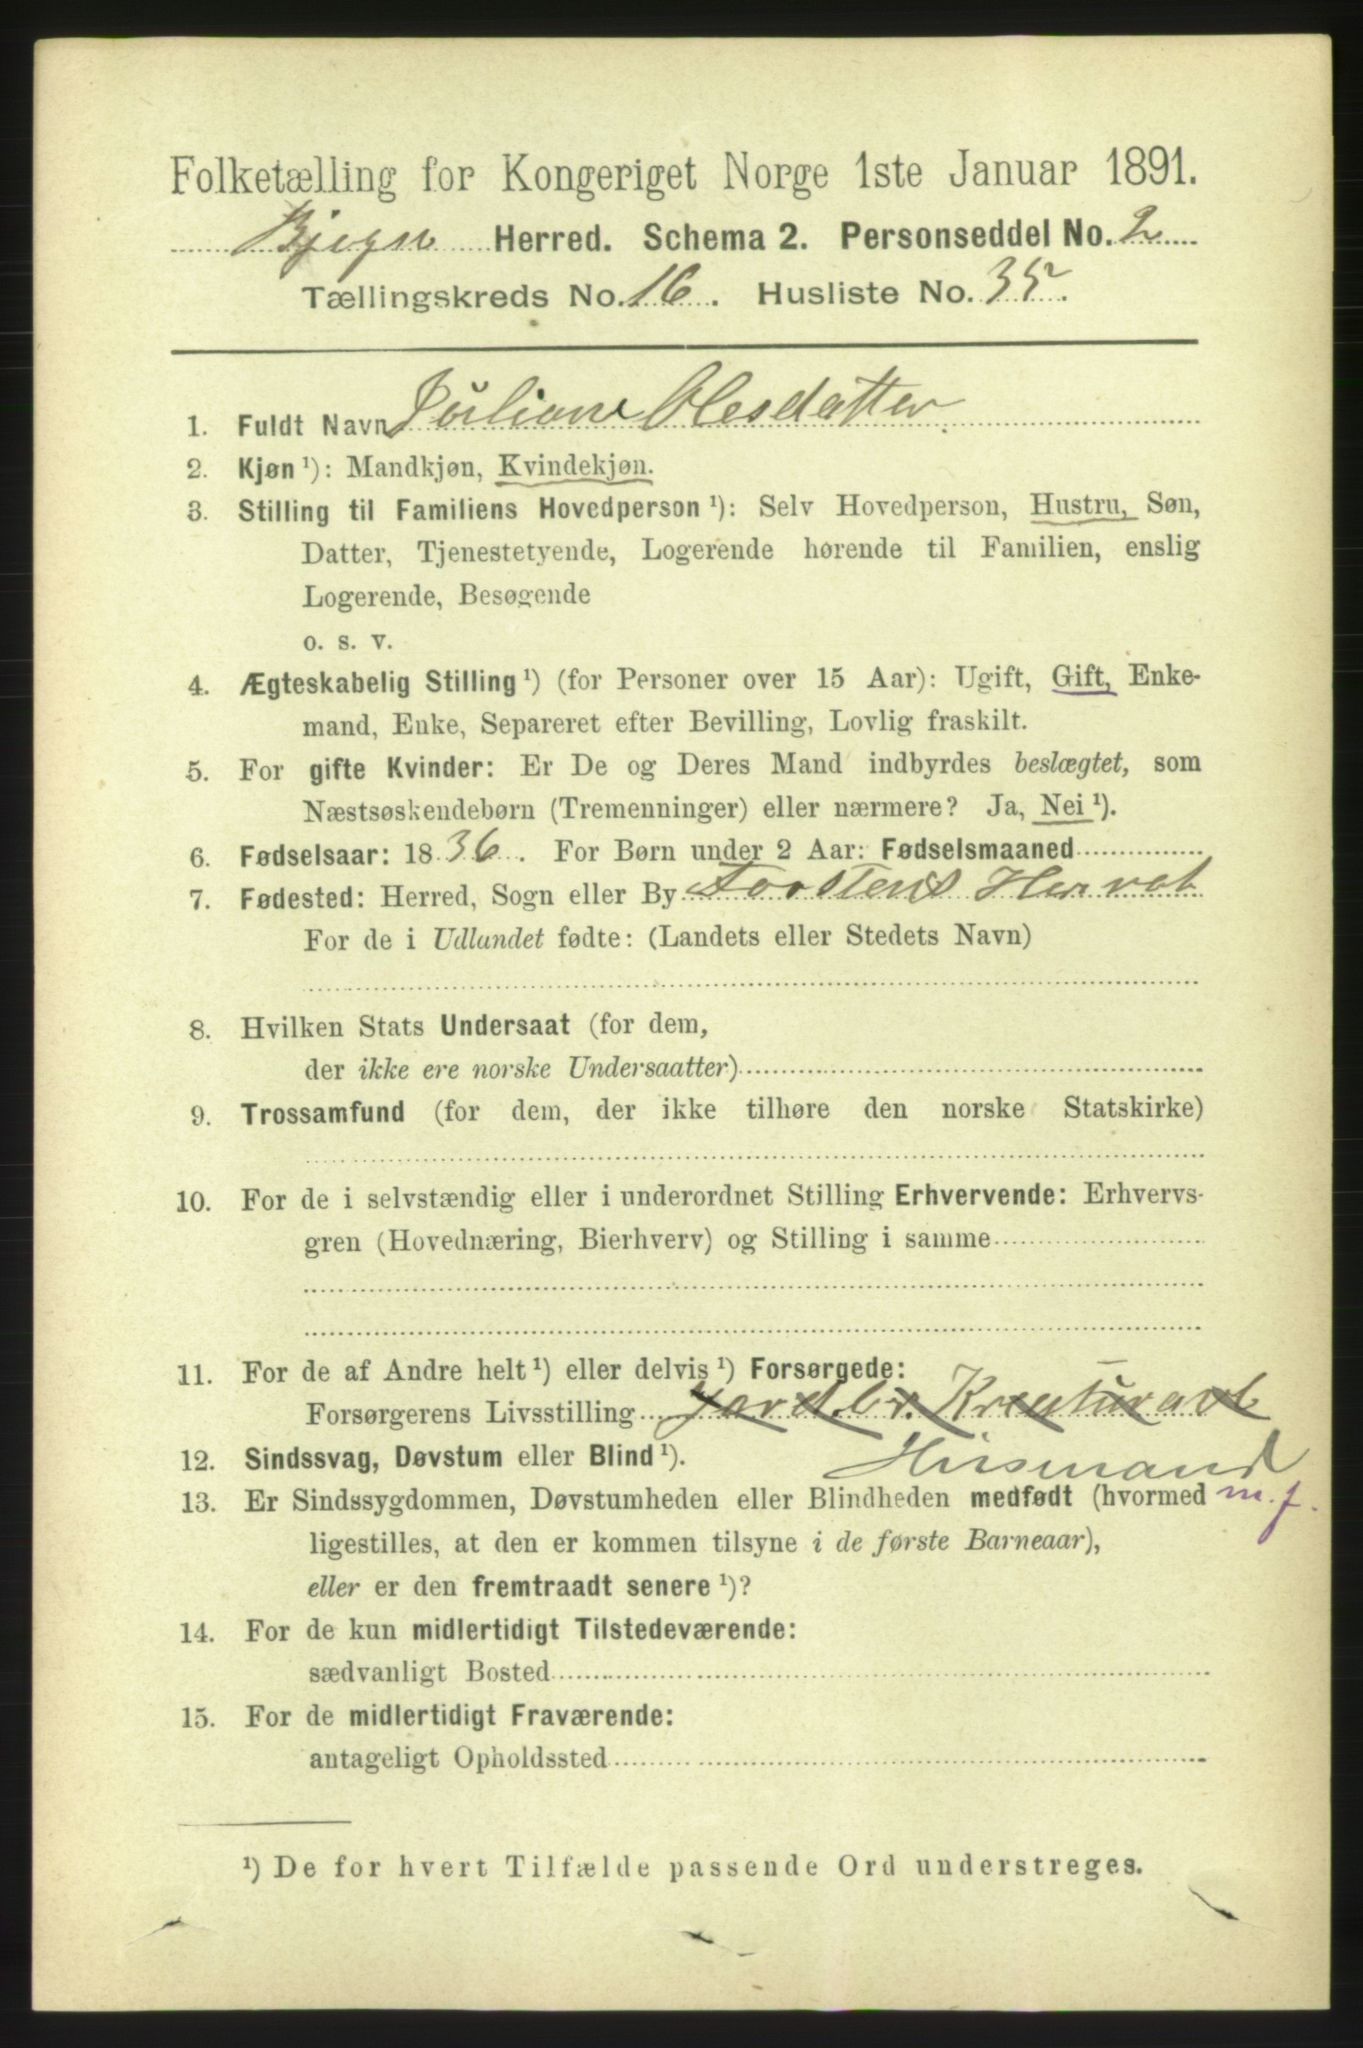 Folketælling for Kongeriget Norge 1ste Januar 1891.
Bjugn Herred. Schema 2. Personseddel No. 2
Tællingskreds No. 16. Husliste No. 35.
1. Fuldt Navn Juliane Olesdatter
2. Kjøn ¹): Mandkjøn, Kvindekjøn.
3. Stilling til Familiens Hovedperson ¹): Selv Hovedperson, Hustru, Søn,
Datter, Tjenestetyende, Logerende hørende til Familien, enslig
Logerende, Besøgende
o. s. v.
4. Ægteskabelig Stilling ¹) (for Personer over 15 Aar): Ugift, Gift, Enke-
mand, Enke, Separeret efter Bevilling, Lovlig fraskilt.
5. For gifte Kvinder: Er De og Deres Mand indbyrdes beslægtet, som
Næstsøskendebørn (Tremenninger) eller nærmere? Ja, Nei ¹).
6. Fødselsaar: 1836. For Børn under 2 Aar: Fødselsmaaned
7. Fødested: Herred, Sogn eller By Fosstens Herret
For de i Udlandet fødte: (Landets eller Stedets Navn)
8. Hvilken Stats Undersaat (for dem,
der ikke ere norske Undersaatter)
9. Trossamfund (for dem, der ikke tilhøre den norske Statskirke)
10. For de i selvstændig eller i underordnet Stilling Erhvervende: Erhvervs-
gren (Hovednæring, Bierhverv) og Stilling i samme
11. For de af Andre helt ¹) eller delvis ¹) Forsørgede:
Forsørgerens Livsstilling Jordbr. Kreaturavl
12. Sindssvag, Døvstum eller Blind ¹). Husmand
13. Er Sindssygdommen, Døvstumheden eller Blindheden medfødt (hvormed m. j.
ligestilles, at den er kommen tilsyne i de første Barneaar),
eller er den fremtraadt senere ¹)?
14. For de kun midlertidigt Tilstedeværende:
sædvanligt Bosted
15. For de midlertidigt Fraværende:
antageligt Opholdssted
¹) De for hvert Tilfælde passende Ord understreges.